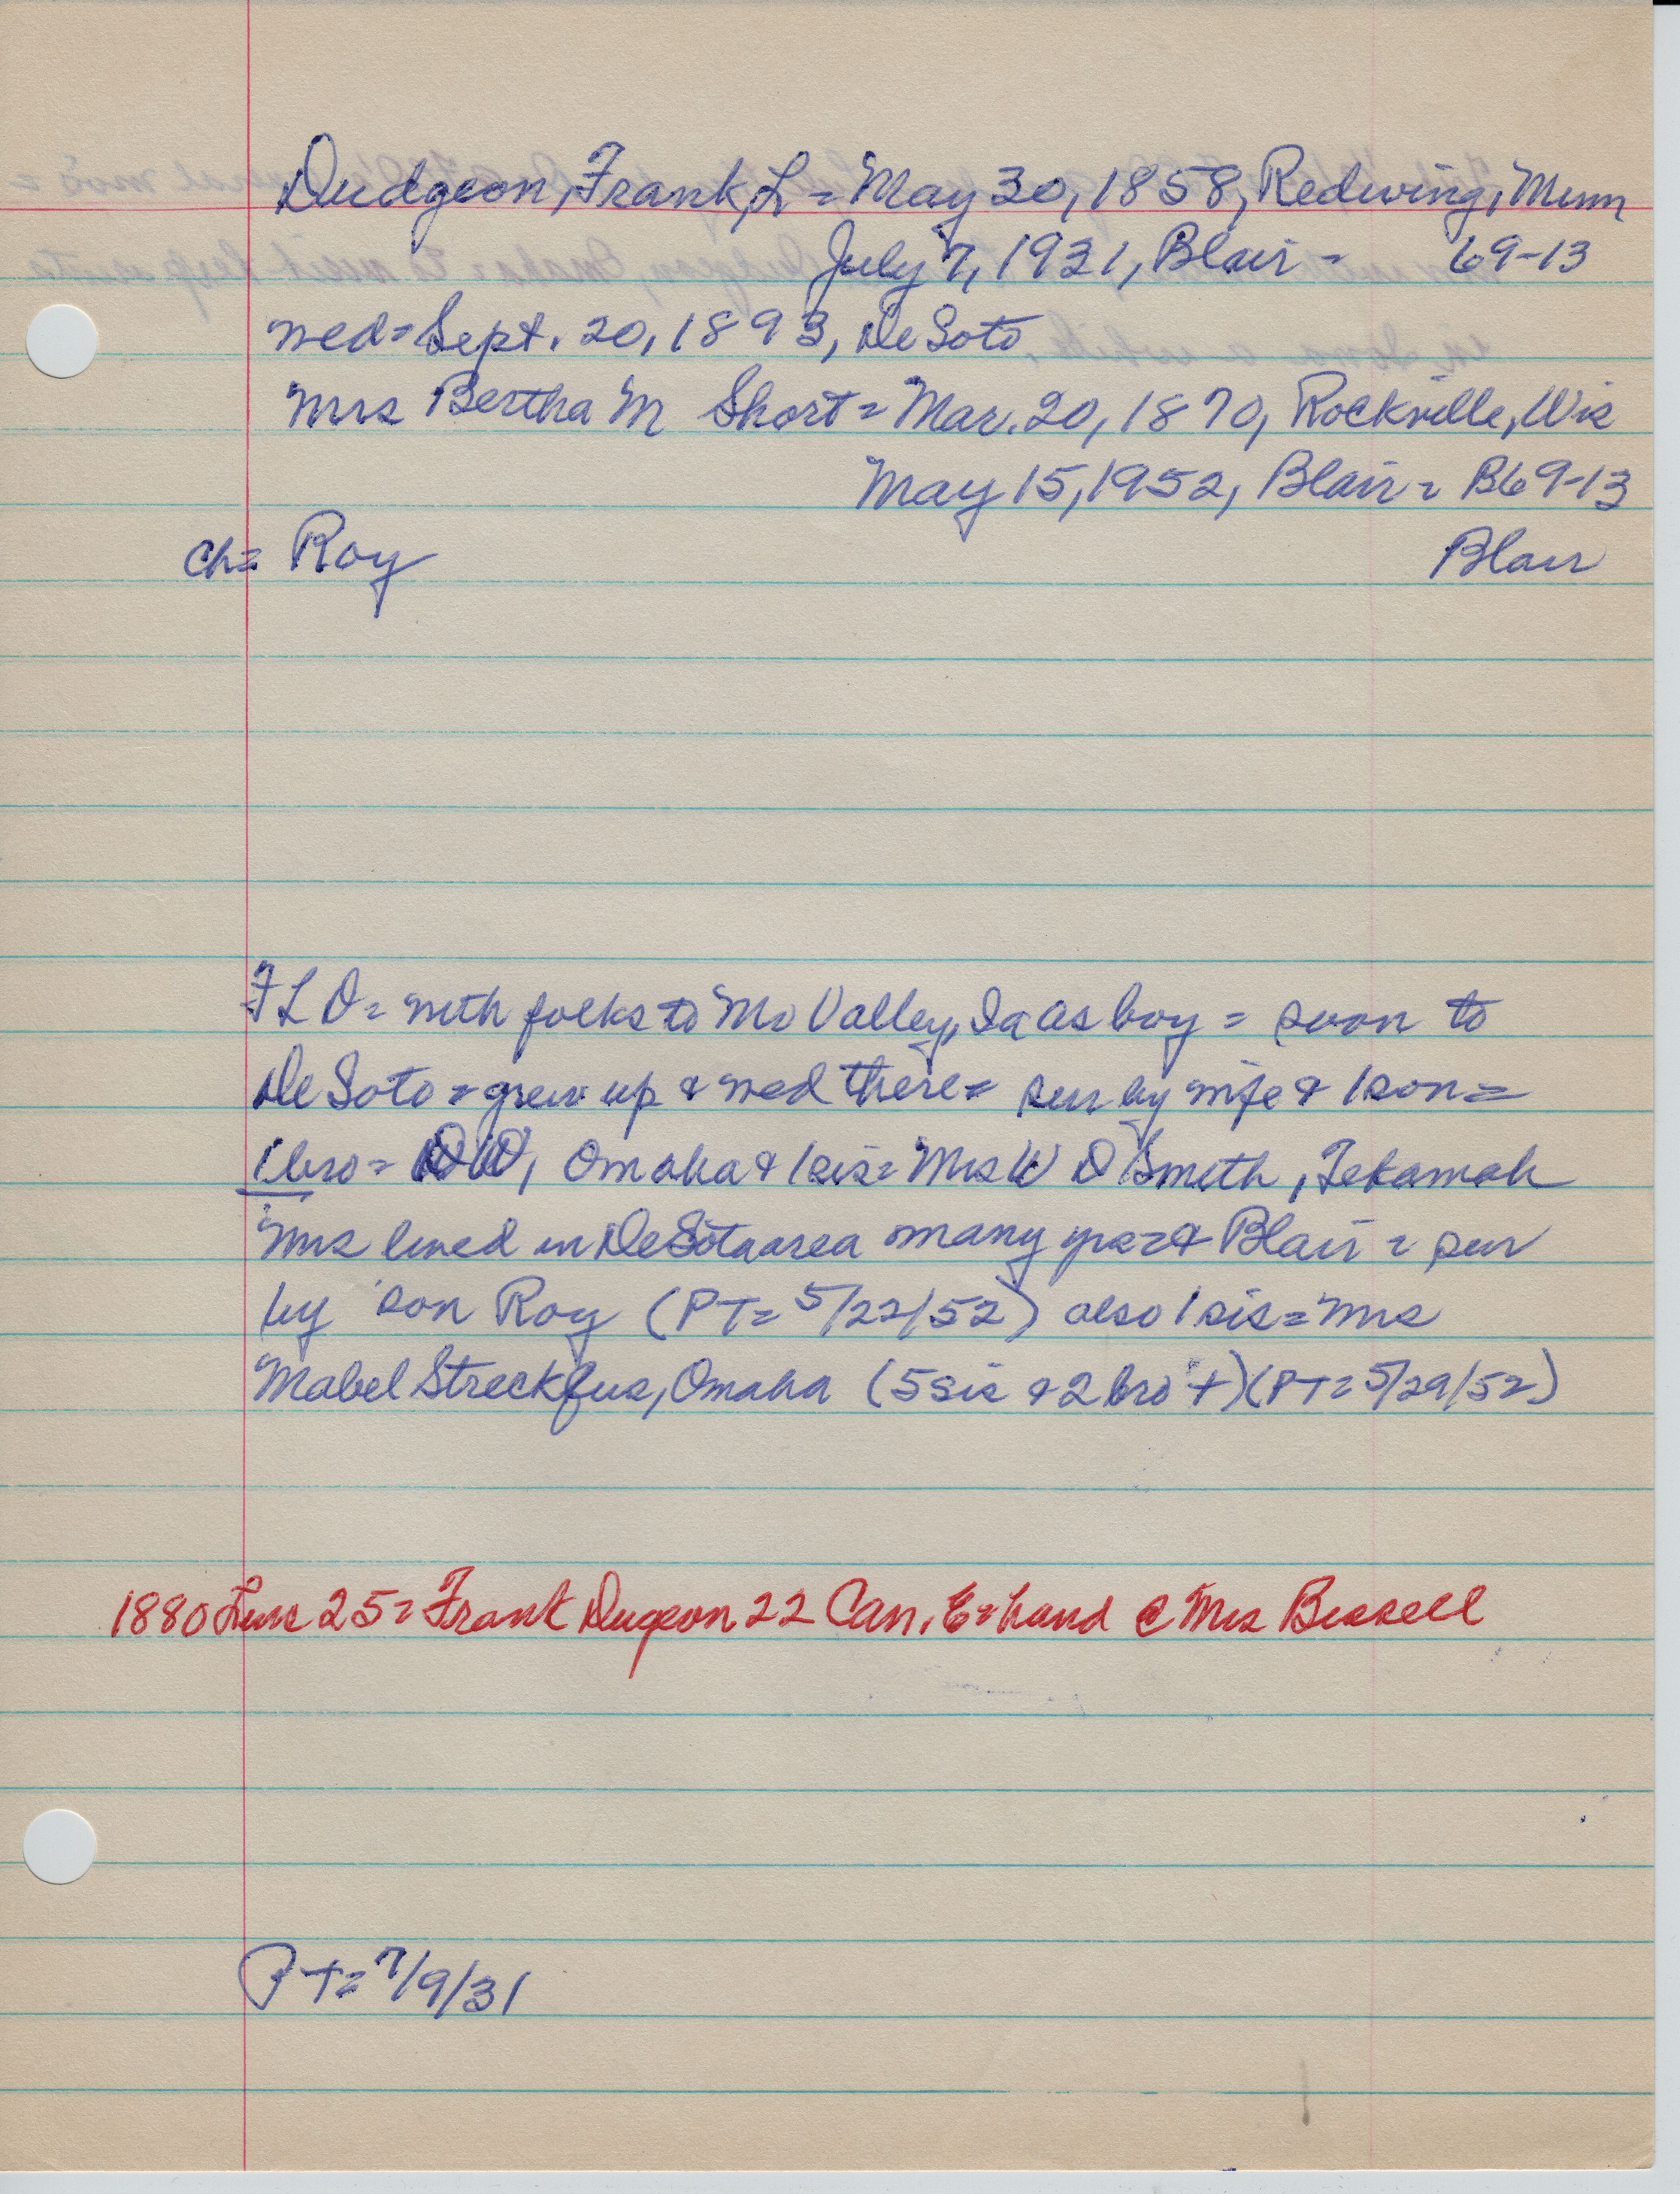 Dudgeon, Frank, L = May 30, 1858, Redwing, Minn
July 7, 1931, Blair = 69-13
wed = Sept. 20, 1893, DeSoto
Mrs Bertha M Short = Mar. 20, 1870, Rockville, Wis
May 15, 1952, Blair = B69-13
ch = Roy Blair
F L D = with folks to Mo Valley, Ia as boy = soon to
DeSoto = grew up & wed there = sur by wife & 1 son =
1 bro = Omaha & 1 sis = Mrs W D Smith, Tekamah
Mrs lived in DeSoto area many yrs & Blair = sur
by son Roy (PT = 5/22/52) also 1 sis = Mrs
Mabel Streckfus, Omaha (5 sis & 2 bro +) (PT = 5/29/52)
1880 June 25 = Frank Dugeon 22 Can. E = hand @ Mrs Bissell
PT = 7/9/31